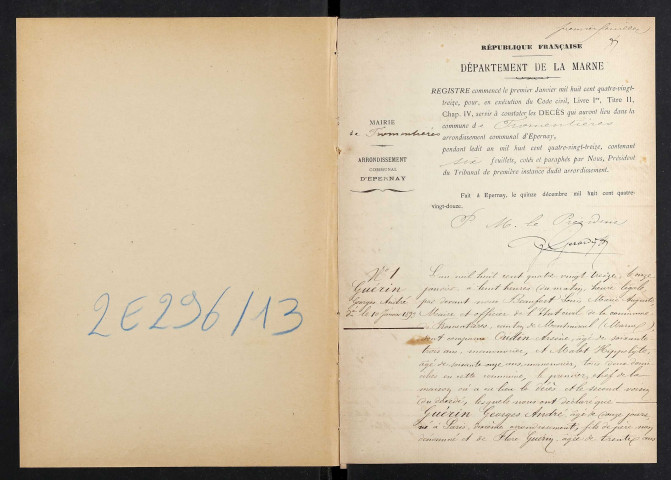 2E296/13
premier feuillet
RÉPUBLIQUE FRANÇAISE
DÉPARTEMENT DE LA MARNE
REGISTRE commencé le premier Janvier mil huit cent quatre-vingt-
treize, pour, en exécution du Code civil, Livre Ier, Titre II,
Chap. IV, servir à constater les DÉCÈS qui auront lieu dans la
commune de Fromentières
arrondissement communal d'Epernay,
pendant ledit an mil huit cent quatre-vingt-treize, contenant
six feuillets, cotés et paraphés par Nous, Président
du Tribunal de première instance dudit arrondissement.
MAIRIE
de Fromentières
ARRONDISSEMENT
COMMUNAL
D'ÉPERNAY
Fait à Epernay, le quinze décembre mil huit cent quatre-
vingt-douze.
P. M. le Président
N° 1
Guérin
Georges André
L'an mil huit cent quatre vingt treize, le onze
janvier, à huit heures du matin, heure légale
par devant nous Louis Marie Auguste
Maire et officier de l'Etat civil de la commune
de Fromentières, canton de Montmirail (Marne),
sont comparus Oudin Arsène, âgé de soixante
trois ans, manouvrier, et Malot Hippolyte,
âgé de soixante onze ans, manouvrier, tous deux domi-
ciliés en cette commune, le premier, chef de la
maison où a eu lieu le décès et le second voisin
du décédé, lesquels nous ont déclaré que
Guérin Georges André, âgé de onze jours,
né à Paris, arrondissement, fils de père non
dénommé et de Flore Guérin, âgée de trente ans